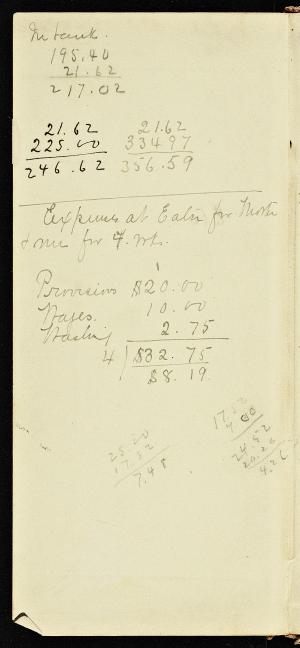 In bank.
195.40
21.62
217.02
21.62 21.62
225.00 334.97
246.62 356.59
Expenses at for
& me for 4. wks.
Provisions $20.00
Wages. 10.00
Washing 2.75
4 $32.75
$8.19
25.00
17.52
7.48
17.52
7.00
24.52
20.26
4.26